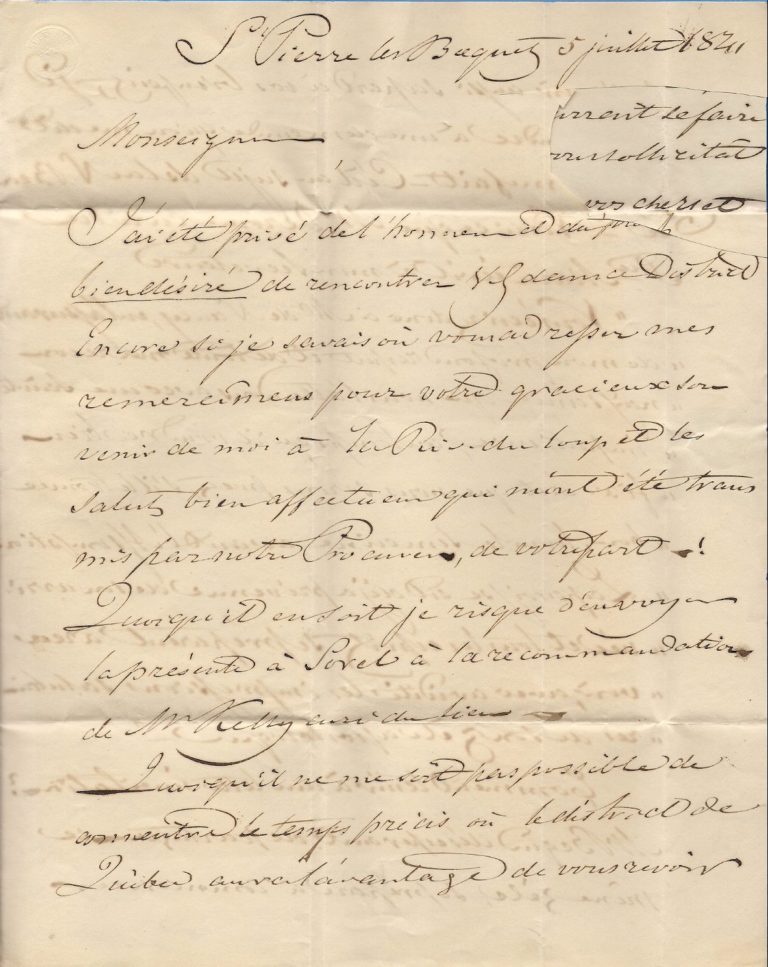 St Pierre les Becquets 5 juillet 1841
urront se faire
vous sollicitât
vos chers et
Monseigneur
J'ai été privé de l'honneur et du
bien désiré de rencontrer VG dans ce District
Encore si je savais où vous adresser mes
remercimens pour votre gracieux sou
venir de moi à la Riv. du loup et les
saluts bien affectueux qui m'ont été trans
mis par notre Procureur, de votre part !
Quoiqu'il en soit je risque d'envoyer
la présente à Sorel à la recommandation
de Mr Kelly curé du lieu
Quoiqu'il ne me soit pas possible de
connaitre le temps précis où le district de
Québec aura l'avantage de vous revoir